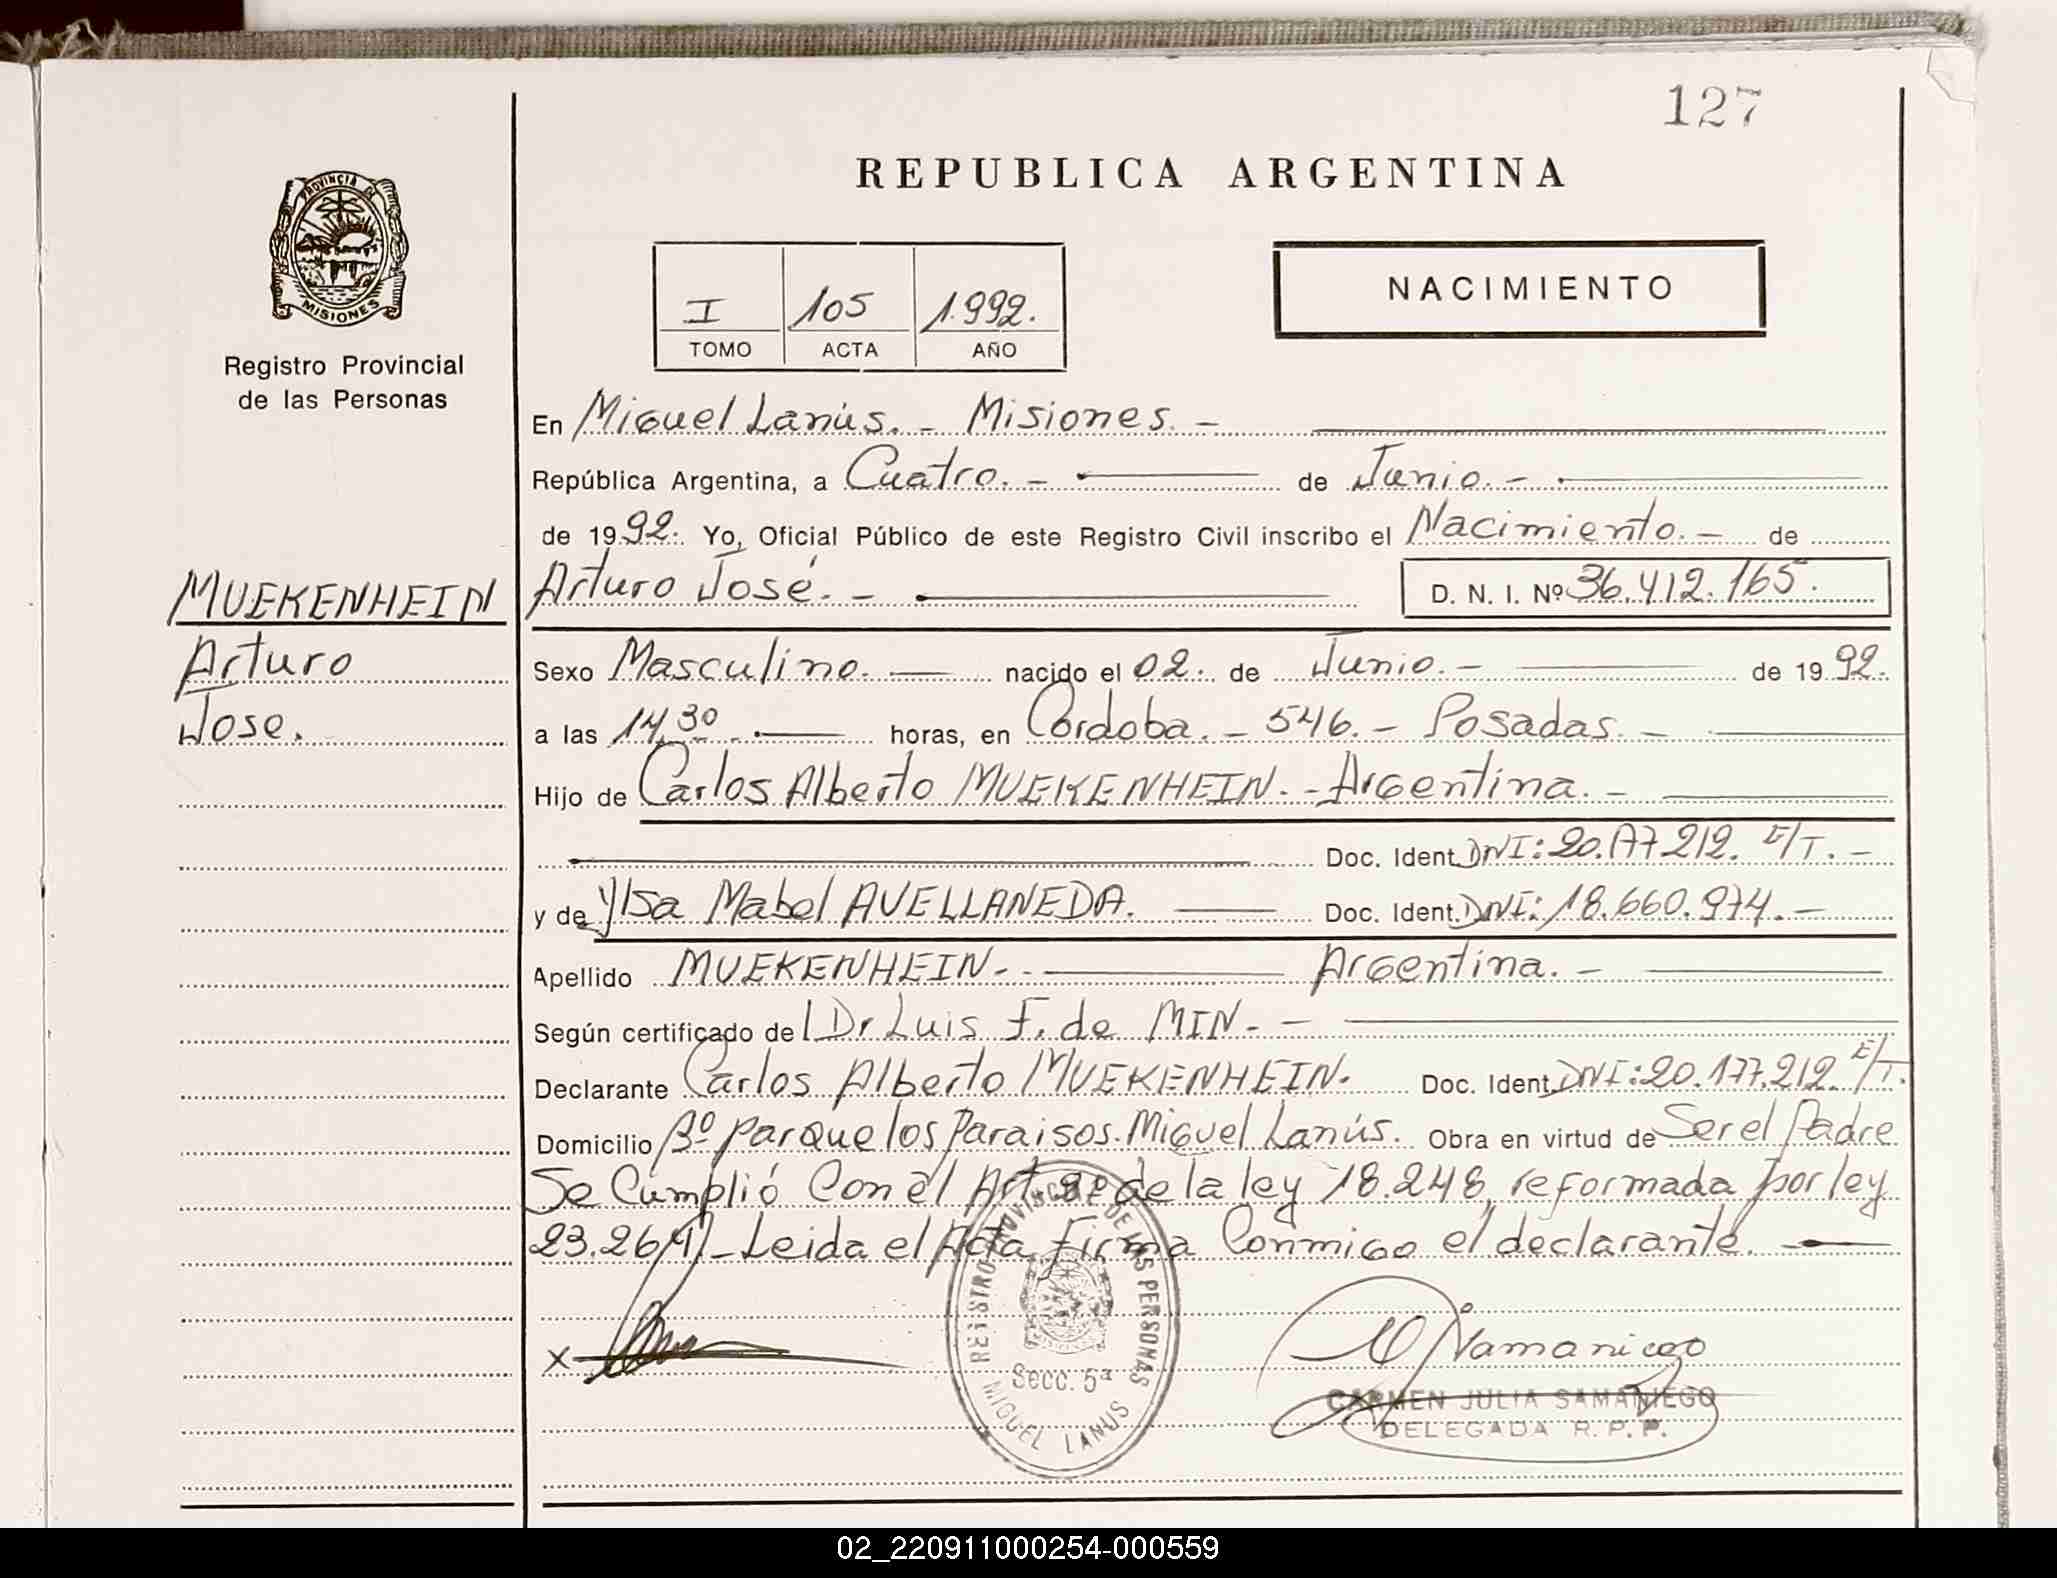 127
REPUBLICA ARGENTINA
PROVINCIA DE
MISIONES
Registro Provincial
de las Personas
I 105 1.992.
TOMO ACTA AÑO
NACIMIENTO
En Miguel Lanús. - Misiones. -
República Argentina, a Cuatro. - de Junio. -
de 1992. Yo, Oficial Público de este Registro Civil inscribo el Nacimiento. - de
MUEKENHEIN
Arturo
Jose.
Arturo José. - D. N. I. Nº 36.412.165.
Sexo Masculino. nacido el 02. de Junio. - de 1992.
a las 14,30 horas, en Córdoba. - 546. - Posadas. -
Hijo de Carlos Alberto MUEKENHEIN. - Argentina. -
Doc. Ident. DNI: 20.177.212. E/T. -
y de Ylsa Mabel AVELLANEDA. Doc. Ident. DNI: 18.660.974. -
Apellido MUEKENHEIN. - Argentina. -
Según certificado del Dr Luis F. de MIN. - -
Declarante Carlos Alberto MUEKENHEIN. Doc. Ident. DNI: 20.177.212. E/T.
Domicilio Bº Parque los Paraisos. Miguel Lanús. Obra en virtud de Ser el Padre
Se Cumplió Con el Art. 2º de la ley 18.248, reformada por ley
23.264). - Leida el Acta, Firma Conmigo el declarante. -
X
REGISTRO PROVINCIAL DE LAS PERSONAS
Secc. 5ª
MIGUEL LANUS
Samaniego
CARMEN JULIA SAMANIEGO
DELEGADA R. P. P.
02_220911000254-000559